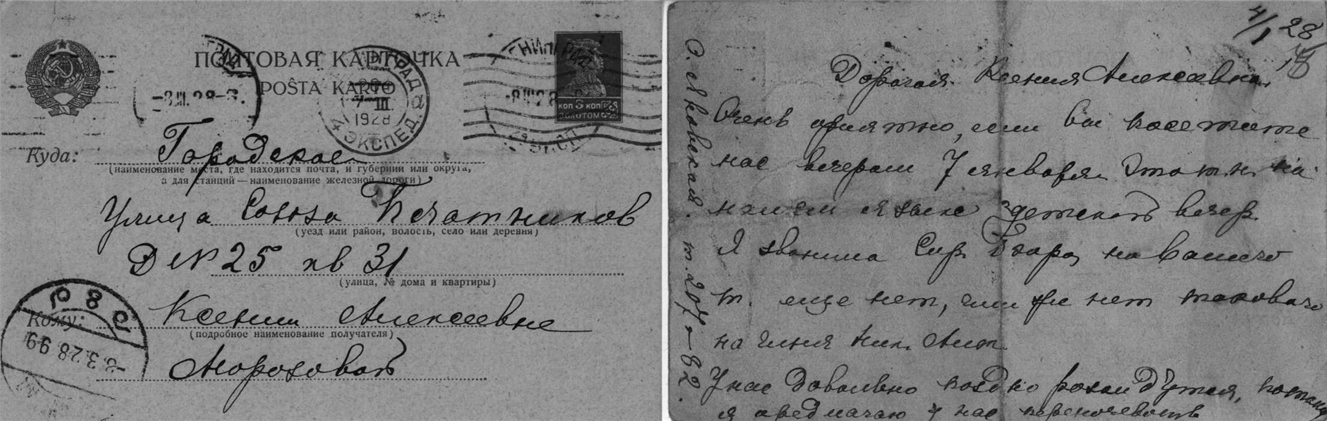 ПОЧТОВАЯ КАРТОЧКА
POŜTA KARTO
-8.III.28-6.
1928
4 ЭКСПЕД.
-8 III 28
КОП 3 КОП
ЗОЛОТОМ
Куда: Городское
(наименование места, где находится почта, и губернии или округа,
а для станций — наименование железной дороги)
Улица Союза Печатников
(уезд или район, волость, село или деревня)
Д № 25 кв 31
(улица, № дома и квартиры)
Кому: Ксении Алексеевне
(подробное наименование получателя)
Морозовой
8.3.28
4/1 28
Дорогая Ксения Алексеевна,
Очень приятно, если Вы посетите
нас вечером 7 января. Это т. н. на
нашем языке детский вечер.
Я звонила но Вашего
т. еще нет, или же нет такового
на имя Ник. Ант.
У нас довольно поздно разойдутся, потому
я предлагаю у нас переночевать
О. Яковская. т. 207-82.